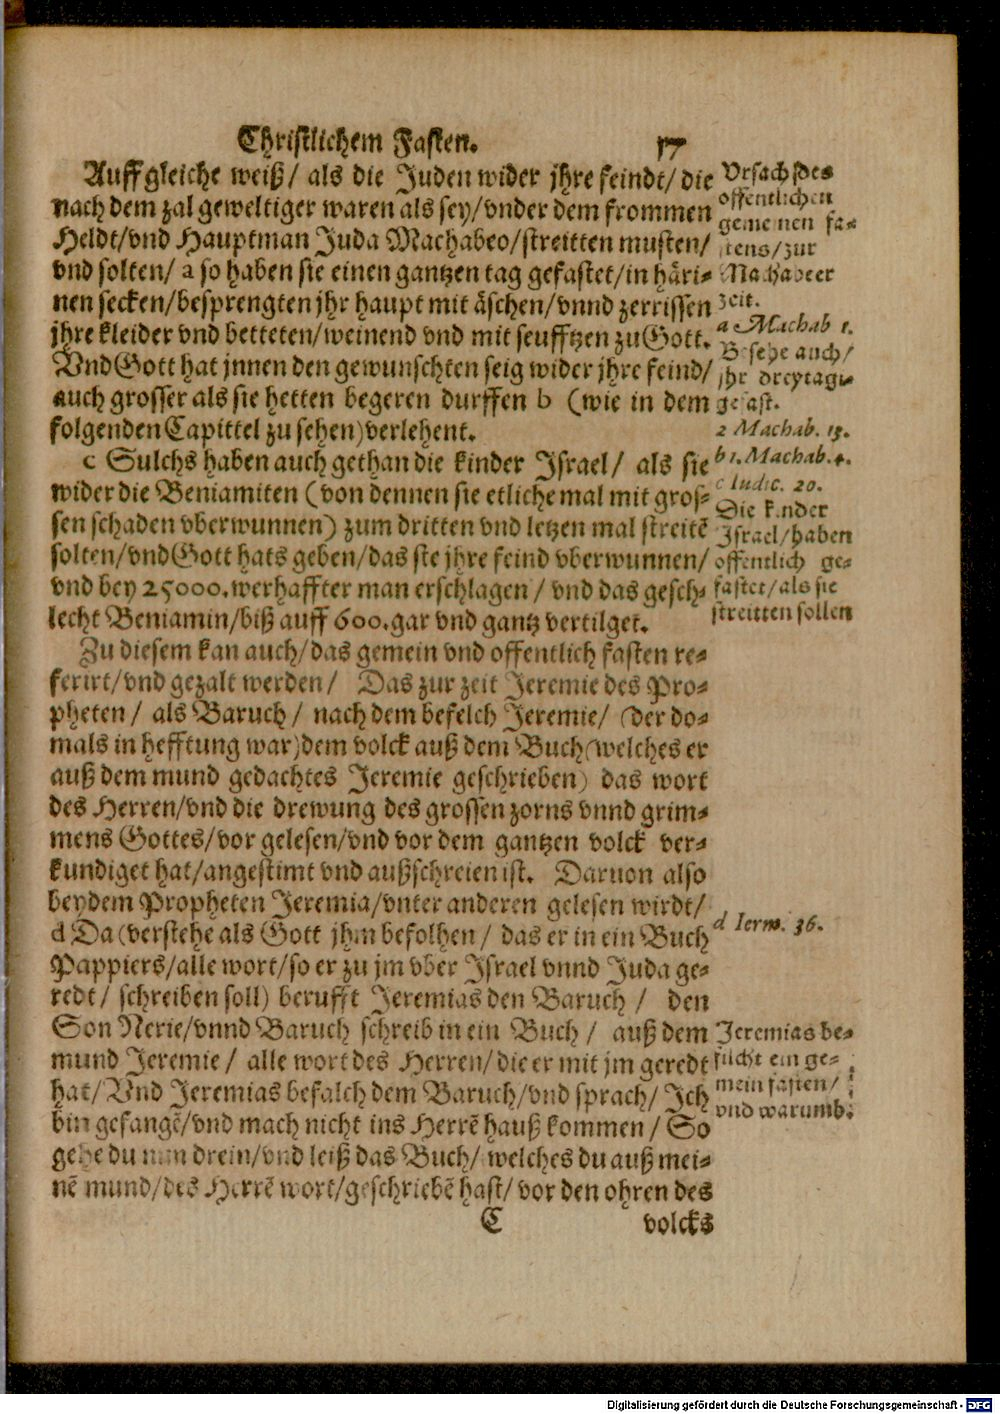 Christlichem Fasten. 17
Auff gleiche weiß/ als die Juden wider jhre feindt/ die
nach dem zal geweltiger waren als sey/vnder dem frommen
Heldt/vnd Hauptman Juda Machabeo/streitten musten/
vnd solten/ a so haben sie einen gantzen tag gefastet/in häri⸗
nen secken/besprengten jhr haupt mit äschen/vnnd zerrissen
jhre kleider vnd betteten/weinend vnd mit seufftzen zu Gott.
Vnd Gott hat jnnen den gewunschten seig wider jhre feind/
auch grosser als sie hetten begeren durffen b (wie in dem
folgenden Capittel zu sehen) verlehent.
c Sulchs haben auch gethan die kinder Israel/ als sie
wider die Beniamiten (von dennen sie etliche mal mit gros⸗
sen schaden vberwunnen) zum dritten vnd letzen mal streitẽ
solten/vnd Gott hats geben/das sie jhre feind vberwunnen/
vnd bey 25000. werhaffter man erschlagen/ vnd das gesch⸗
lecht Beniamin/biß auff 600. gar vnd gantz vertilget.
Zu diesem kan auch/das gemein vnd offentlich fasten re⸗
ferirt/vnd gezalt werden/ Das zur zeit Jeremie des Pro⸗
pheten/ als Baruch/ nach dem befelch Jeremie/ (der do⸗
mals in hefftung war) dem volck auß dem Buch (welches er
auß dem mund gedachtes Jeremie geschrieben) das wort
des Herren/vnd die drewung des grossen zorns vnnd grim⸗
mens Gottes/vor gelesen/vnd vor dem gantzen volck ver⸗
kundiget hat/angestimt vnd außschreien ist. Daruon also
bey dem Propheten Jeremia/vnter anderen gelesen wirdt/
d Da (verstehe als Gott jhm befolhen/ das er in ein Buch
Pappiers/alle wort/so er zu jm vber Israel vnnd Juda ge⸗
redt/ schreiben soll) berufft Jeremias den Baruch/ den
Son Nerie/vnnd Baruch schreib in ein Buch/ auß dem
mund Jeremie/ alle wort des Herren/die er mit jm geredt
hat/ Vnd Jeremias befalch dem Baruch/vnd sprach/ Ich
bin gefangẽ/vnd mach nicht ins Herrẽ hauß kommen/ So
gehe du nun drein/vnd leiß das Buch/ welches du auß mei⸗
nẽ mund/des Herrẽ wort/geschriebẽ hast/ vor den ohren des
C volcks
Vrsach des
offentlichen
gemeinen fa⸗
stens/zur
Machabeer
zeit.
a 1 Machab 1.
Besehe auch/
jhr dreytagi⸗
ge fast.
2 Machab. 13.
b 1. Machab. 4.
c Iudic. 20.
Die kinder
Israel/haben
offentlich ge⸗
fastet/als sie
streitten sollen
d Ierm. 36.
Jeremias be⸗
filcht ein ge⸗
mein fasten/
vnd warumb.
Digitalisierung gefördert durch die Deutsche Forschungsgemeinschaft - DFG